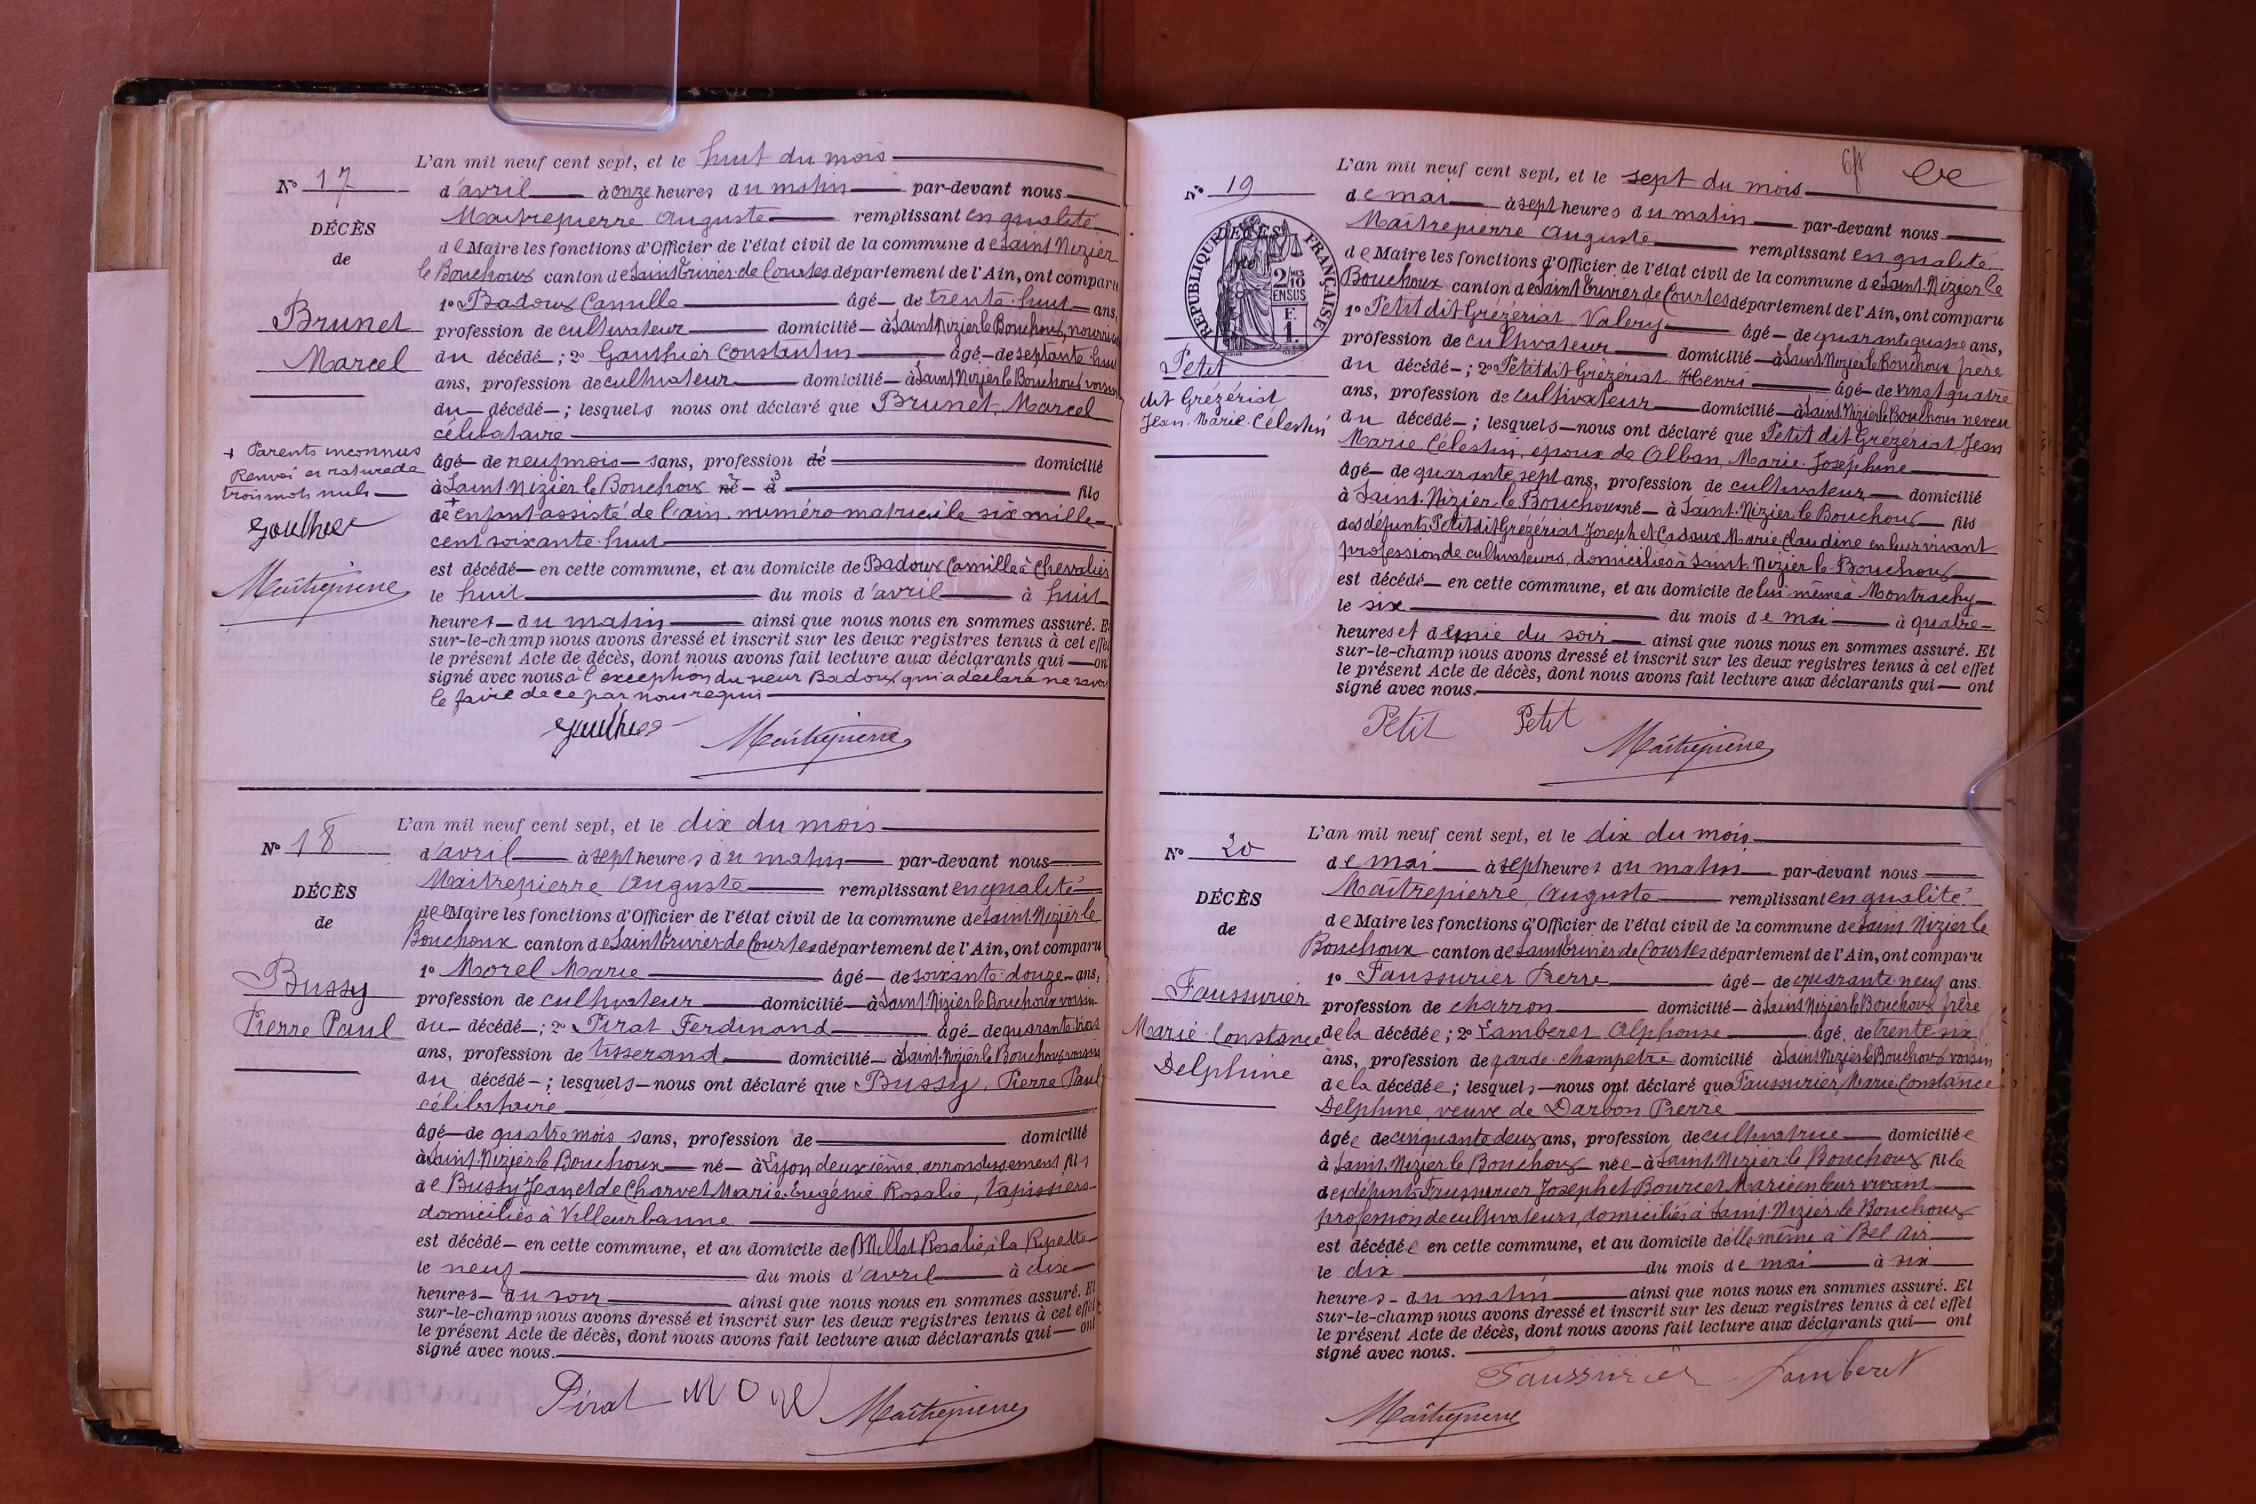 L'an mil neuf cent sept, et le huit du mois
N° 17
d'avril à onze heures du matin par-devant nous
Maitrepierre Auguste remplissant en qualité
DÉCÈS
de Maire les fonctions d'Officier de l'état civil de la commune de Saint Nizier
de
le Bouchoux canton de Saint Trivier de Courtes département de l'Ain, ont comparu
1° Badoux Camille âgé de trente huit ans,
Brunet
profession de cultivateur domicilié à Saint Nizier le Bouchoux, nourricier
Marcel
du décédé ; 2° Gauthier Constantin âgé de septante huit
ans, profession de cultivateur domicilié à Saint Nizier le Bouchoux voisin
du décédé ; lesquels nous ont déclaré que Brunet Marcel
célibataire
+ Parents inconnus
Renvoi et rature de
trois mots nuls
âgé de neuf mois sans, profession dé domicilié
à Saint Nizier le Bouchoux né à fils
de + enfant assisté de l'ain numéro matricule six mille
Gauthier
cent soixante huit
est décédé en cette commune, et au domicile de Badoux Camille à Chevalier
Maîtrepierre
le huit du mois d'avril à huit
heures du matin ainsi que nous nous en sommes assuré. Et
sur-le-champ nous avons dressé et inscrit sur les deux registres tenus à cet effet
le présent Acte de décès, dont nous avons fait lecture aux déclarants qui ont
signé avec nous à l'exception du sieur Badoux qui a déclaré ne savoir
le faire de ce par nous requis
Gauthier Maîtrepierre
L'an mil neuf cent sept, et le dix du mois
N° 18
d'avril à sept heures du matin par-devant nous
Maitrepierre Auguste remplissant en qualité
DÉCÈS
de Maire les fonctions d'Officier de l'état civil de la commune de Saint Nizier le
de
Bouchoux canton de Saint Trivier de Courtes département de l'Ain, ont comparu
1° Morel Marie âgé de soixante douze ans,
Bussy
profession de cultivateur domicilié à Saint Nizier le Bouchoux voisin
Pierre Paul
du décédé ; 2° Pirat Ferdinand âgé de quarante trois
ans, profession de tisserand domicilié à Saint Nizier le Bouchoux voisin
du décédé ; lesquels nous ont déclaré que Bussy, Pierre Paul
célibataire
âgé de quatre mois sans, profession de domicilié
à Saint Nizier le Bouchoux né à Lyon deuxième arrondissement fils
de Bussy Jean et de Charvet Marie Eugénie Rosalie, tapissiers
domiciliés à Villeurbanne
est décédé en cette commune, et au domicile de Millet Rosalie à la Ripette
le neuf du mois d'avril à dix
heures du soir ainsi que nous nous en sommes assuré. Et
sur-le-champ nous avons dressé et inscrit sur les deux registres tenus à cet effet
le présent Acte de décès, dont nous avons fait lecture aux déclarants qui ont
signé avec nous.
Pirat Morel Maîtrepierre
L'an mil neuf cent sept, et le sept du mois
N° 19
de mai à sept heures du matin par-devant nous
Maîtrepierre Auguste remplissant en qualité
RÉPUBLIQUE FRANÇAISE
2/10 EN SUS
F. 1.
de Maire les fonctions d'Officier de l'état civil de la commune de Saint Nizier le
Bouchoux canton de Saint Trivier de Courtes département de l'Ain, ont comparu
1° Petit dit Grézériat Valery âgé de quarante quatre ans,
profession de cultivateur domicilié à Saint Nizier le Bouchoux frère
Petit
dit Grézériat
Jean Marie Célestin
du décédé ; 2° Petit dit Grézériat Henri âgé de vingt quatre
ans, profession de cultivateur domicilié à Saint Nizier le Bouchoux neveu
du décédé ; lesquels nous ont déclaré que Petit dit Grézériat Jean
Marie Célestin, époux de Alban Marie Joséphine
âgé de quarante sept ans, profession de cultivateur domicilié
à Saint Nizier le Bouchoux né à Saint Nizier le Bouchoux fils
des défunts Petit dit Grézériat Joseph et Cadoux Marie Claudine en leur vivant
profession de cultivateurs, domiciliés à Saint Nizier le Bouchoux
est décédé en cette commune, et au domicile de lui même à Montrachy
le six du mois de mai à quatre
heures et demie du soir ainsi que nous nous en sommes assuré. Et
sur-le-champ nous avons dressé et inscrit sur les deux registres tenus à cet effet
le présent Acte de décès, dont nous avons fait lecture aux déclarants qui ont
signé avec nous.
Petit Petit Maîtrepierre
L'an mil neuf cent sept, et le dix du mois
N° 20
de mai à sept heures du matin par-devant nous
Maîtrepierre Auguste remplissant en qualité
DÉCÈS
de Maire les fonctions d'Officier de l'état civil de la commune de Saint Nizier le
de
Bouchoux canton de Saint Trivier de Courtes département de l'Ain, ont comparu
1° Faussurier Pierre âgé de quarante neuf ans.
Faussurier
profession de charron domicilié à Saint Nizier le Bouchoux frère
Marie Constance
de la décédée ; 2° Lamberet Alphonse âgé de trente six
Delphine
ans, profession de garde champêtre domicilié à Saint Nizier le Bouchoux voisin
de la décédée ; lesquels nous ont déclaré que Faussurier Marie Constance
Delphine, veuve de Darbon Pierre
âgée de cinquante deux ans, profession de cultivatrice domiciliée
à Saint Nizier le Bouchoux née à Saint Nizier le Bouchoux fille
des défunts Faussurier Joseph et Bourcet Marie en leur vivant
profession de cultivateurs, domiciliés à Saint Nizier le Bouchoux
est décédée en cette commune, et au domicile d'elle même à Bel Air
le dix du mois de mai à six
heures du matin ainsi que nous nous en sommes assuré. Et
sur-le-champ nous avons dressé et inscrit sur les deux registres tenus à cet effet
le présent Acte de décès, dont nous avons fait lecture aux déclarants qui ont
signé avec nous.
Faussurier Lamberet
Maîtrepierre